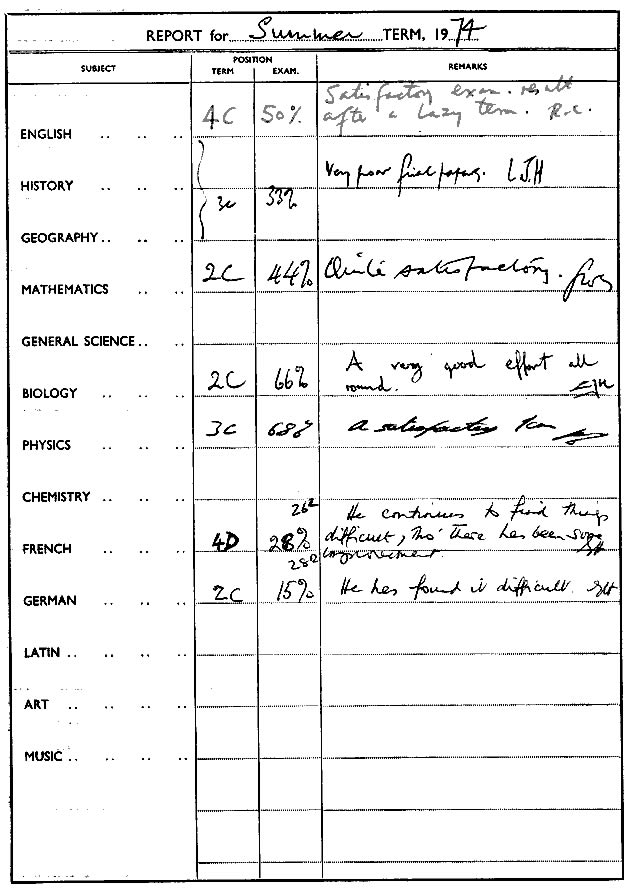 REPORT for Summer TERM, 1974
SUBJECT POSITION REMARKS
TERM EXAM.
ENGLISH .. .. .. 4C 50% Satisfactory exam. result
after a lazy term. R.C.
HISTORY .. .. .. Very poor final papers. LJH
3c 33%
GEOGRAPHY .. .. ..
MATHEMATICS .. .. 2C 44% Quite satisfactory.
GENERAL SCIENCE .. ..
BIOLOGY .. .. .. 2C 66% A very good effort all
round.
PHYSICS .. .. .. 3c 68% A satisfactory
CHEMISTRY .. .. ..
FRENCH .. .. .. 4D 28% 26² He continues to find things
difficult, tho' there has been some
improvement.
GERMAN .. .. .. 2C 15% 28² He has found it difficult.
LATIN .. .. .. ..
ART .. .. .. ..
MUSIC .. .. .. ..